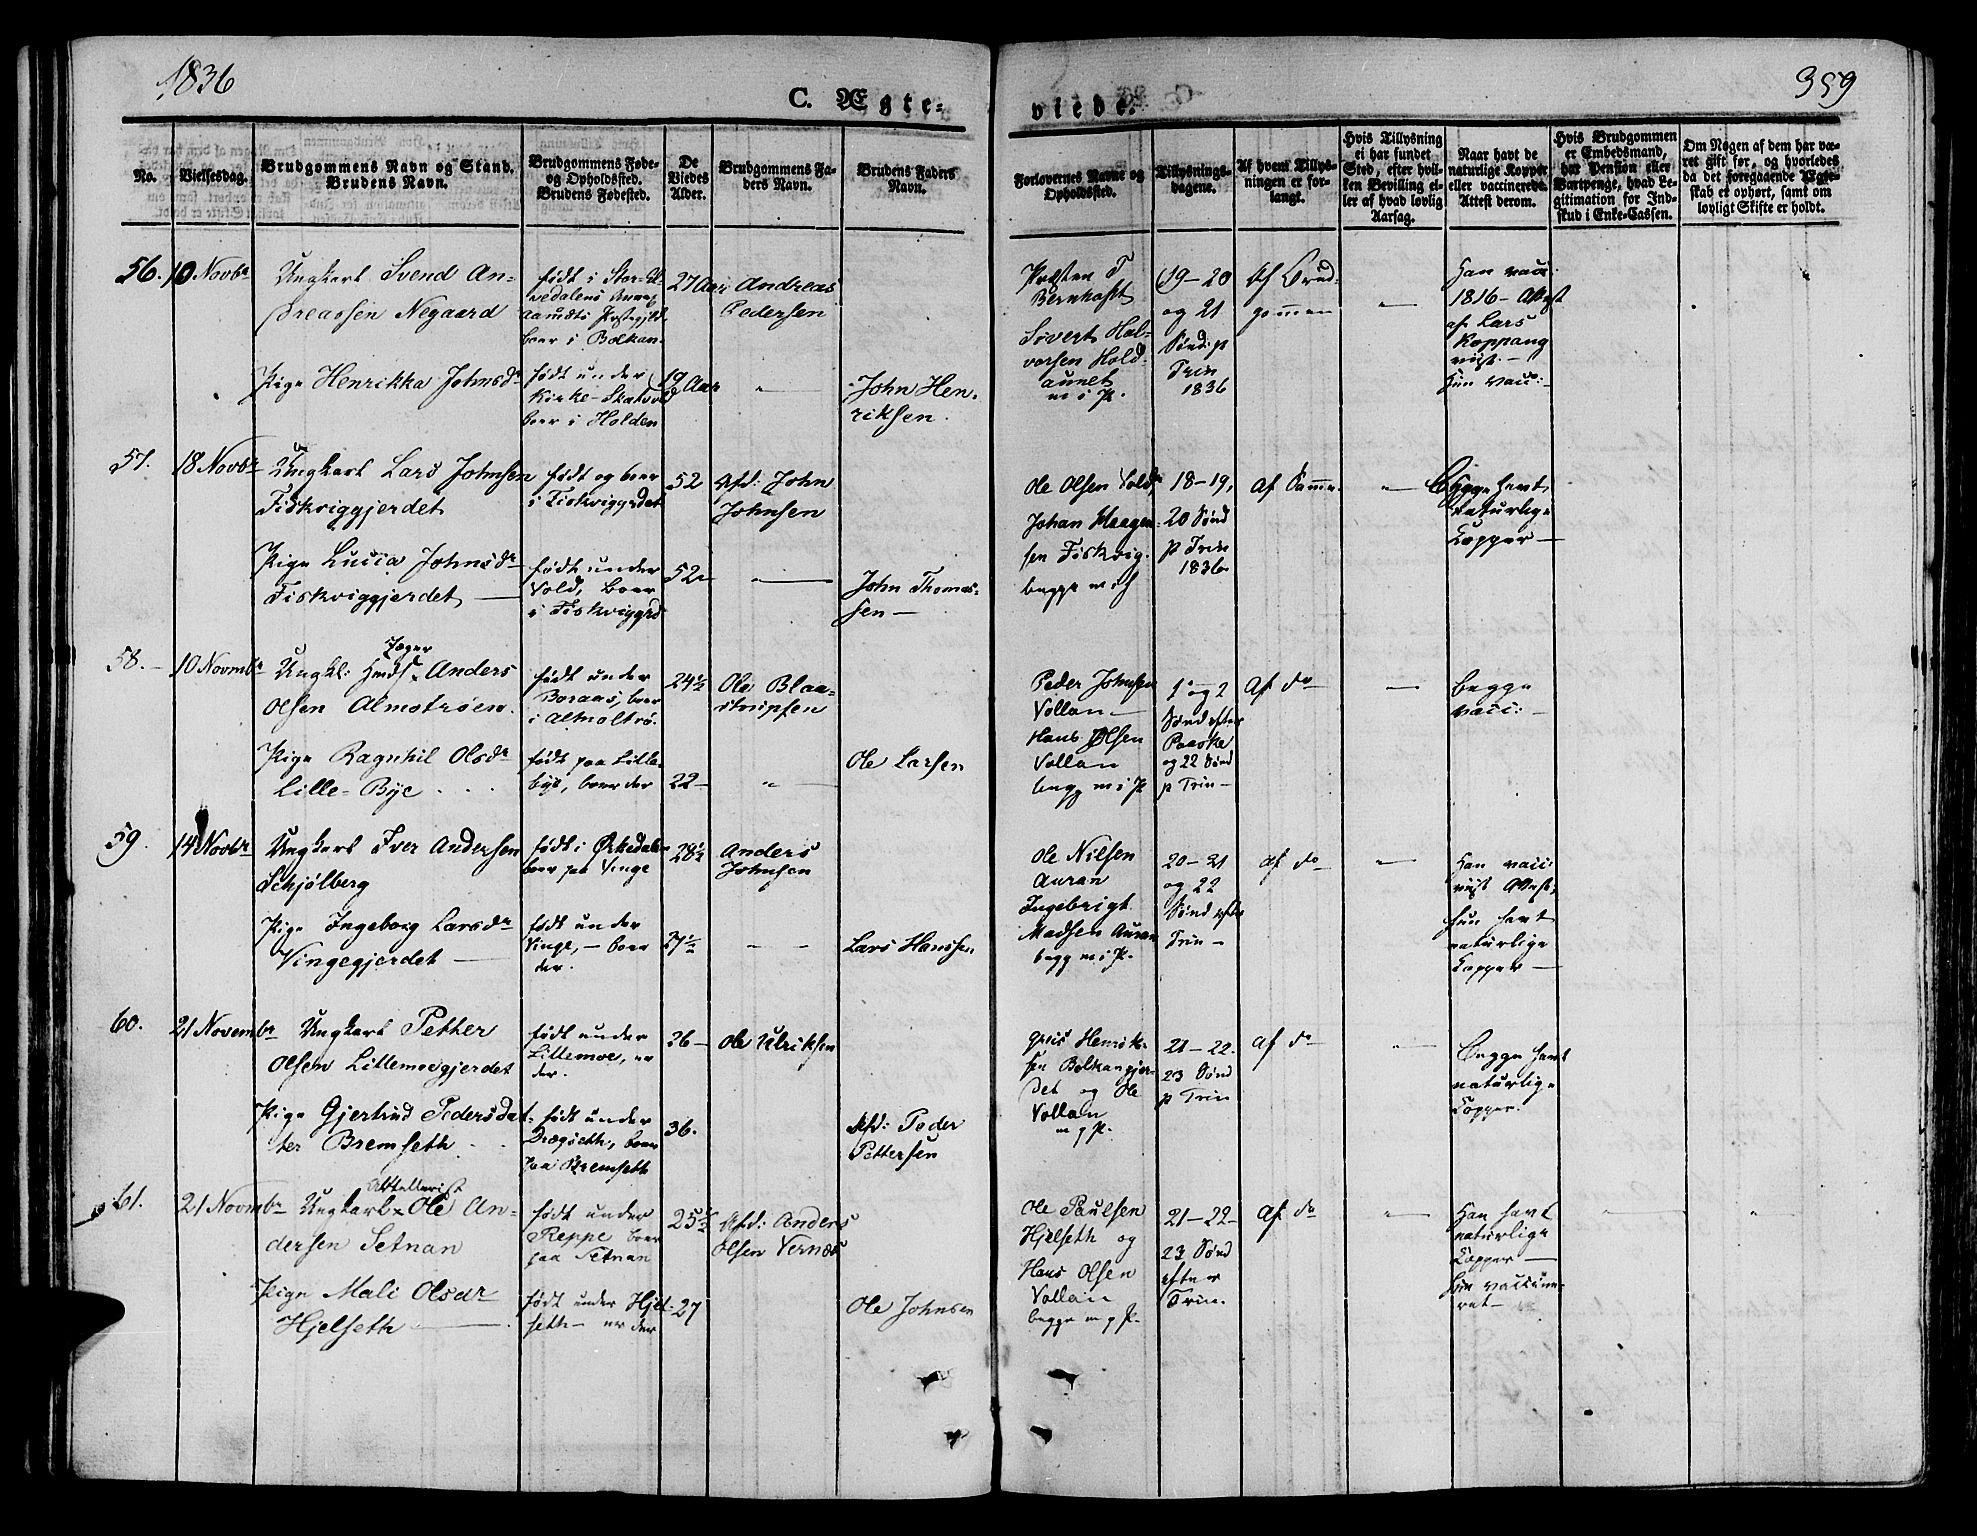 1836
359
C. Ægte-
viede.
No.
Vielsesdag.
Brudgommens Navn og Stand.
Brudens Navn.
Brudgommens Føde-
og Opholdssted.
Brudens Fødested.
De
Viedes
Alder.
Brudgommens Fa-
ders Navn.
Brudens Faders
Navn.
Forlovernes Navne og
Opholdssted.
Tillysnings-
dagene.
Af hvem Tillys-
ningen er for-
langt.
Hvis Tillysning
ei har fundet
Sted, efter hvil-
ken Bevilling el-
ler af hvad lovlig
Aarsag.
Naar havt de
naturlige Kopper
eller vaccinerede.
Attest derom.
Hvis Brudgommen
er Embedsmand,
har Pension eller
Vartpenge, hvad Le-
gitimation for Ind-
skud i Enke-Cassen.
Om Nogen af dem har væ-
ret gift før, og hvorledes
da det foregaaende Ægte-
skab er ophørt, samt om
lovligt Skifte er holdt.
56.
10 Novbr
Ungkarl Svend An-
dreassen Negaard
født i
boer i Bolkan.
27 Aar
Andreas
Pedersen
Præsten
Bernhoft
Sivert Hal-
vorsen Hold-
aunet
m i P.
19-20
og 21
Sønd: p
Trin
1836
Af Brud-
gommen
Han vacc:
1816- Attest
af Lars
Koppang
viist.-
Hun vacc:-
Pige Henrikka Johnsdr
født under
Kirke-
boer i Holden
19 Aar
John Hen-
riksen.
57.
18 Novbr
Ungkarl Lars Johnsen
Fiskviggjerdet
født og boer
i Fiskviggrdet
52
Afd: John
Johnsen
Ole Olsen Vold,
Johan Haagen-
sen Fiskvig.
begge m i P
18-19,
20 Sønd
p Trin
1836
Af Samme.
Begge havt
naturlige
Kopper-
Pige Lucia Johnsdr
Fiskviggjerdet
født under
Vold, boer
i Fiskviggrd
52
John Thomas-
sen-
58.-
10 Novmbr
Jæger
Ungkl: Anders
Olsen Almotrøen.
født under
Boraas, boer
i Almoltrø.
24½
Ole Blaa-
strupsen
Peder Johnsen
Vollan-
Hans Olsen
Vollan
begg m i P
1 og 2
Sønd efter
Paaske
og 22 Sønd
p Trin-
Af do
begge
vacc:-
Pige Ragnhil Olsdr
Lille-Bye
født paa Lille-
bye, boer der
22-
Ole Larsen
59.
14 Novbr
Ungkarl Iver Andersen
Schjølberg
født i Ørkedalen
boer paa Vinge
28½
Anders
Johnsen
Ole Nilsen
Auran
Ingebrigt
Madsen Auran
begg m i P.
20-21
og 22
Sønd efter
Trin-
af do
Han vacc:
viist Attest,
hun havt
naturlige
Kopper-
Pige Ingeborg Larsdr
Vingegjerdet
født under
Vinge,- boer
der.
27½
Lars Hanssen
60.
21 Novembr
Ungkarl Petter
Olsen Lillemoegjerdet
født under
Lillemoe, er
der.
26-
Ole Ulriksen
Henrik-
sen Bolkangjer-
det og Ole
Vollan
m g P.
21-22-
23 Sønd
p Trin
af do
Begge havt
naturlige
Kopper.
Pige Gjertrud Pedersdat-
ter Bremseth
født under
Drægseth, boer
paa Bremseth
36.
Afd: Peder
Pettersen
61.
21 Novmbr
Attellerist
Ungkarl Ole An-
dersen Setnan
født under
Reppe boer
paa Setnan
25½
Afd: Anders
Olsen Vernæs
Ole Paulsen
Hjelseth og
Hans Olsen
Vollan
begge m g P.
21-22-
23 Sønd
efter
Trin.
af do
Han havt
naturlige
Kopper-
hun vaccine-
ret-
Pige Mali Olsdr
Hjelseth
født under Hjel-
seth- er der
27
Ole Johnsen